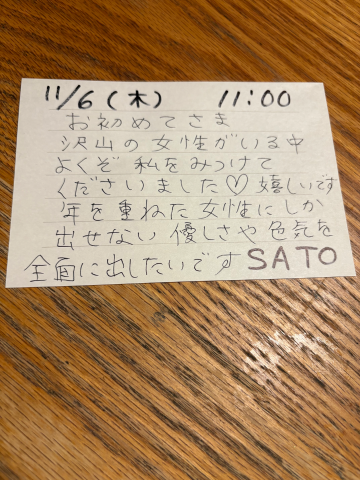 11/6(木) 11:00
お初めてさま
沢山の女性がいる中
よくぞ 私をみつけて
くださいました♡嬉しいです
年を重ねた女性にしか
出せない 優しさや 色気を
全面に出したいです SATO